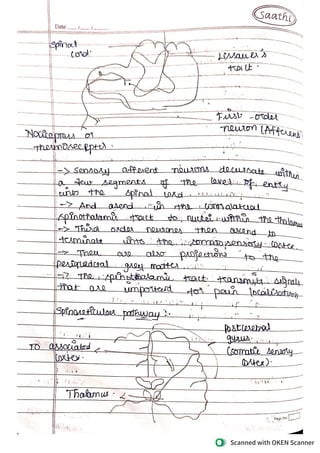 Saathi
Date ...../...../.....
Spinal
Cord.
Lissauer's
tract.
First - order
neuron (Afferent
Nociceptors or
Thermoreceptors.
-> Sensory afferent neurons decussate within
a few segments of the level of entry
into the spinal cord.
-> And asend in the contralateral
spinothalamic tract to nuclei within the thalamus
-> Third order neurones then asend to
terminate into the somatosensory cortex.
-> There are also projections to the
periquedctal grey matter.
-> The spinothalamic tract transmits signals
that are important for pain localisation.
Spinoreticular pathway :-
Postcentral
gyrus
(somatic sensory
cortex).
To associated
cortex
Thalamus
Scanned with OKEN Scanner